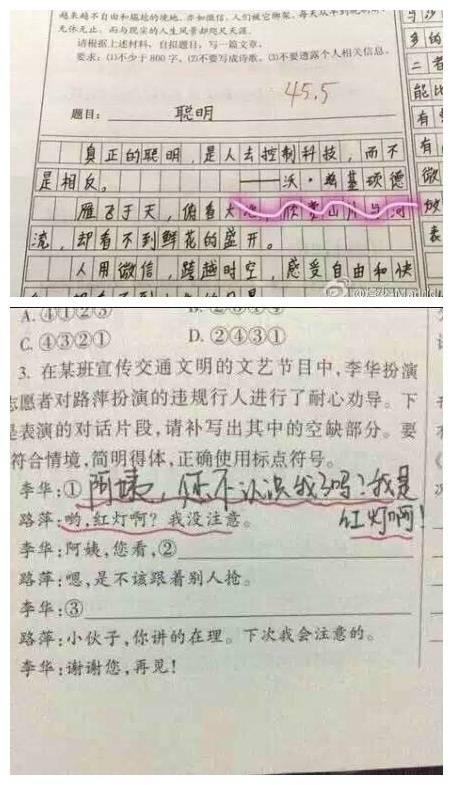 越来越不自由和尴尬的境地。亦如微信，人们被它绑架，
无休无止。而与现实的人生风景却咫尺天涯。
请根据上述材料，自拟题目，写一篇文章。
要求：(1)不少于800字。(2)不要写成诗歌。(3)不要透露个人相关信息。
45.5
题目：聪明
真正的聪明，是人去控制科技，而不
是相反。——沃·兹基硕德
雁飞于天，俯看大地，欣赏山川与河
流，却看不到鲜花的盛开。
人用微信，跨越时空，感受自由和快
A.④①②③
C.④③②① D.②④③①
3. 在某班宣传交通文明的文艺节目中，李华扮演
志愿者对路萍扮演的违规行人进行了耐心劝导。下
是表演的对话片段，请补写出其中的空缺部分。要
符合情境，简明得体，正确使用标点符号。
李华：①阿姨，您不认识我了吗？我是
红灯啊！
路萍：哟，红灯啊？我没注意。
李华：阿姨，您看，②
路萍：嗯，是不该跟着别人抢。
李华：③
路萍：小伙子，你讲的在理。下次我会注意的。
李华：谢谢您，再见！